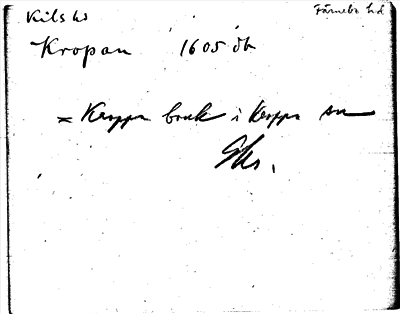 Kils hd Färnebo hd
Kropan 1605 Jb
= Kroppa bruk i Kroppa sn